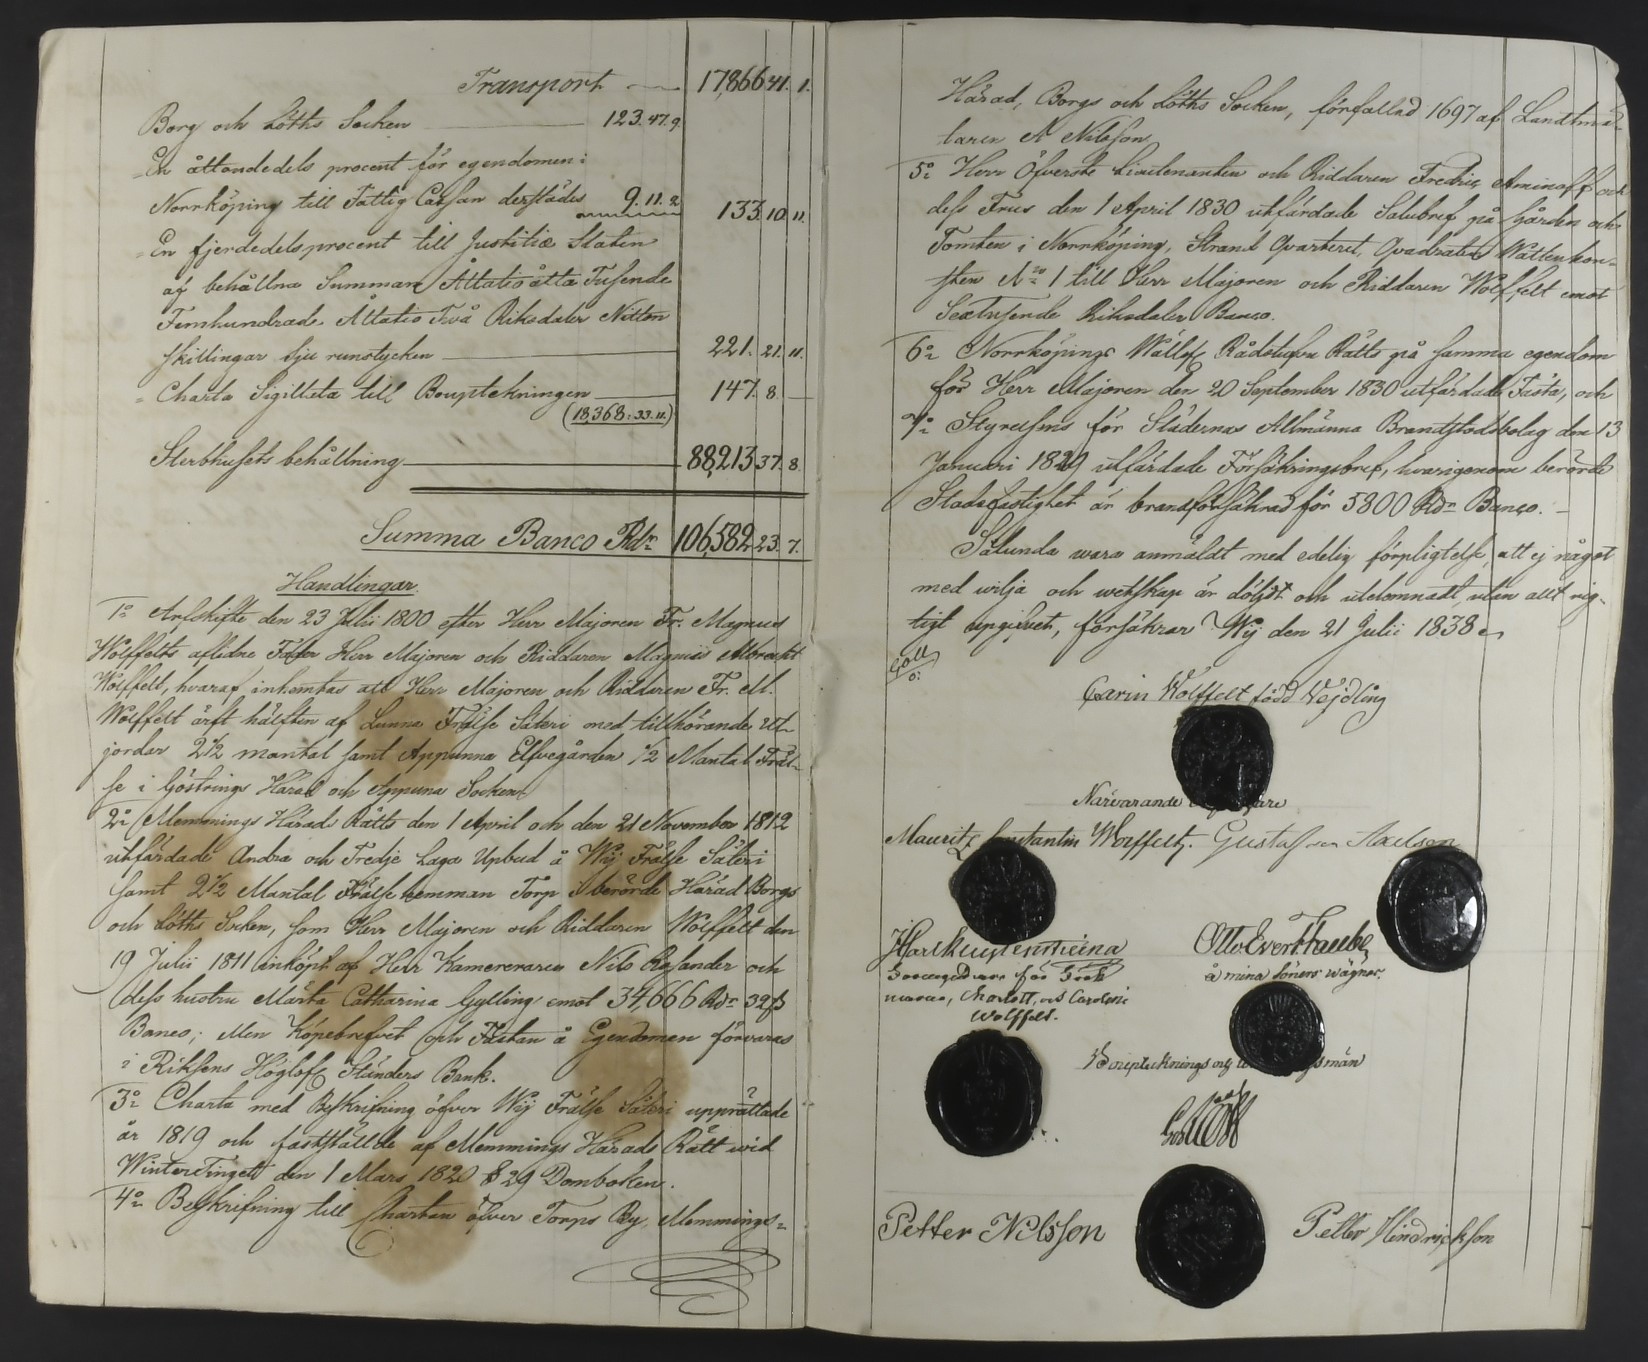 Transport 17,866 41. 1.
Borg och Löths Socken 123.47.9.
En åttondedels procent för egendomen i
Norrköping till Fattig Cassan derstädes 9.11.2. 133 10 11.
En fjerdedels procent till Justitiæ Staten
af behållna Summan Åttatioåtta Tusende
Femhundrade Åttatio Två Riksdaler Nitton
skillingar sju runstycken 221. 21. 11.
Charta Sigillata till Bouptekningen 147. 8. —
(18,368. 33. 11.)
Sterbhusets behållning 88,213 37. 8.
Summa Banco Rdr 106,582 23. 7.
Handlingar.
1o Arfskifte den 23 Julii 1800 efter Herr Majoren Fr. Magnus
Wolffelts aflidne Fader Herr Majoren och Riddaren Magnus Albrecht
Wolffelt, hvaraf inhemtas att Herr Majoren och Riddaren Fr. M.
Wolffelt ärft hälften af Lunna Frälse Säteri med tillhörande Ut-
jordar 2½ mantal samt Appunna Elfvegården ½ Mantal Fräl-
se i Göstrings Härad och Appuna Socken.
2o Memmings Härads Rätts den 1 April och den 21 November 1812
utfärdade Andra och Tredje Laga Upbud å Wij Frälse Säteri
samt 2½ Mantal Frälse hemman Torp i berörde Härad Borgs
och Löths Socken, som Herr Majoren och Riddaren Wolffelt den
19 Julii 1811 inköpt af Herr Kamereraren Nils Rosander och
dess hustru Märta Catharina Gylling emot 34,666 Rdr 32 ß
Banco; Men Köpebrefvet och Fastan å Egendomen förvaras
i Riksens Höglofl. Ständers Bank.
3o Charta med Beskrifning öfver Wij Frälse Säteri upprättade
år 1819 och fastställde af Memmings Härads Rätt vid
WinterTinget den 1 Mars 1820 § 29 Domboken.
4o Beskrifning till Chartan öfver Torps By, Memmings-
Härad, Borgs och Löths Socken, författad 1697 af Landtmä-
taren N Nilsson
5o Herr Öfverste Lieutenanten och Riddaren Fredric Aminoff och
dess Frus den 1 April 1830 utfärdade Salubref på Gården och
Tomten i Norrköping, Strand Qvarteret, Qvadraten Wattenkon-
sten No 1 till Herr Majoren och Riddaren Wolffelt emot
Sextusende Riksdaler Banco.
6o Norrköpings Wällofl. Rådstufvu Rätts på samma egendom
för Herr Majoren den 20 September 1830 utfärdade Fasta, och
7o Styrelsens för Städernas Allmänna Brandstodsbolag den 13
Januari 1829 utfärdade Försäkringsbref, hvarigenom berörde
Stadsfastighet är brandförsäkrad för 5800 Rdr Banco.
Sålunda vara anmäldt med edelig förpligtelse, att ej något
med vilja och vetskap är döljdt och utelemnadt, utan allt rig-
tigt upgifvet, försäkrar Wij den 21 Julii 1838.
Carin Wolffelt född Wejdling
Närvarande
Mauritz Constantin Wolffelt. Gustaf von Axelson
Otto Evert Taube
å mina Söners vägnar.
Charlott, och Carolin
Wolffelt.
Petter Nilsson Petter Hindrickson